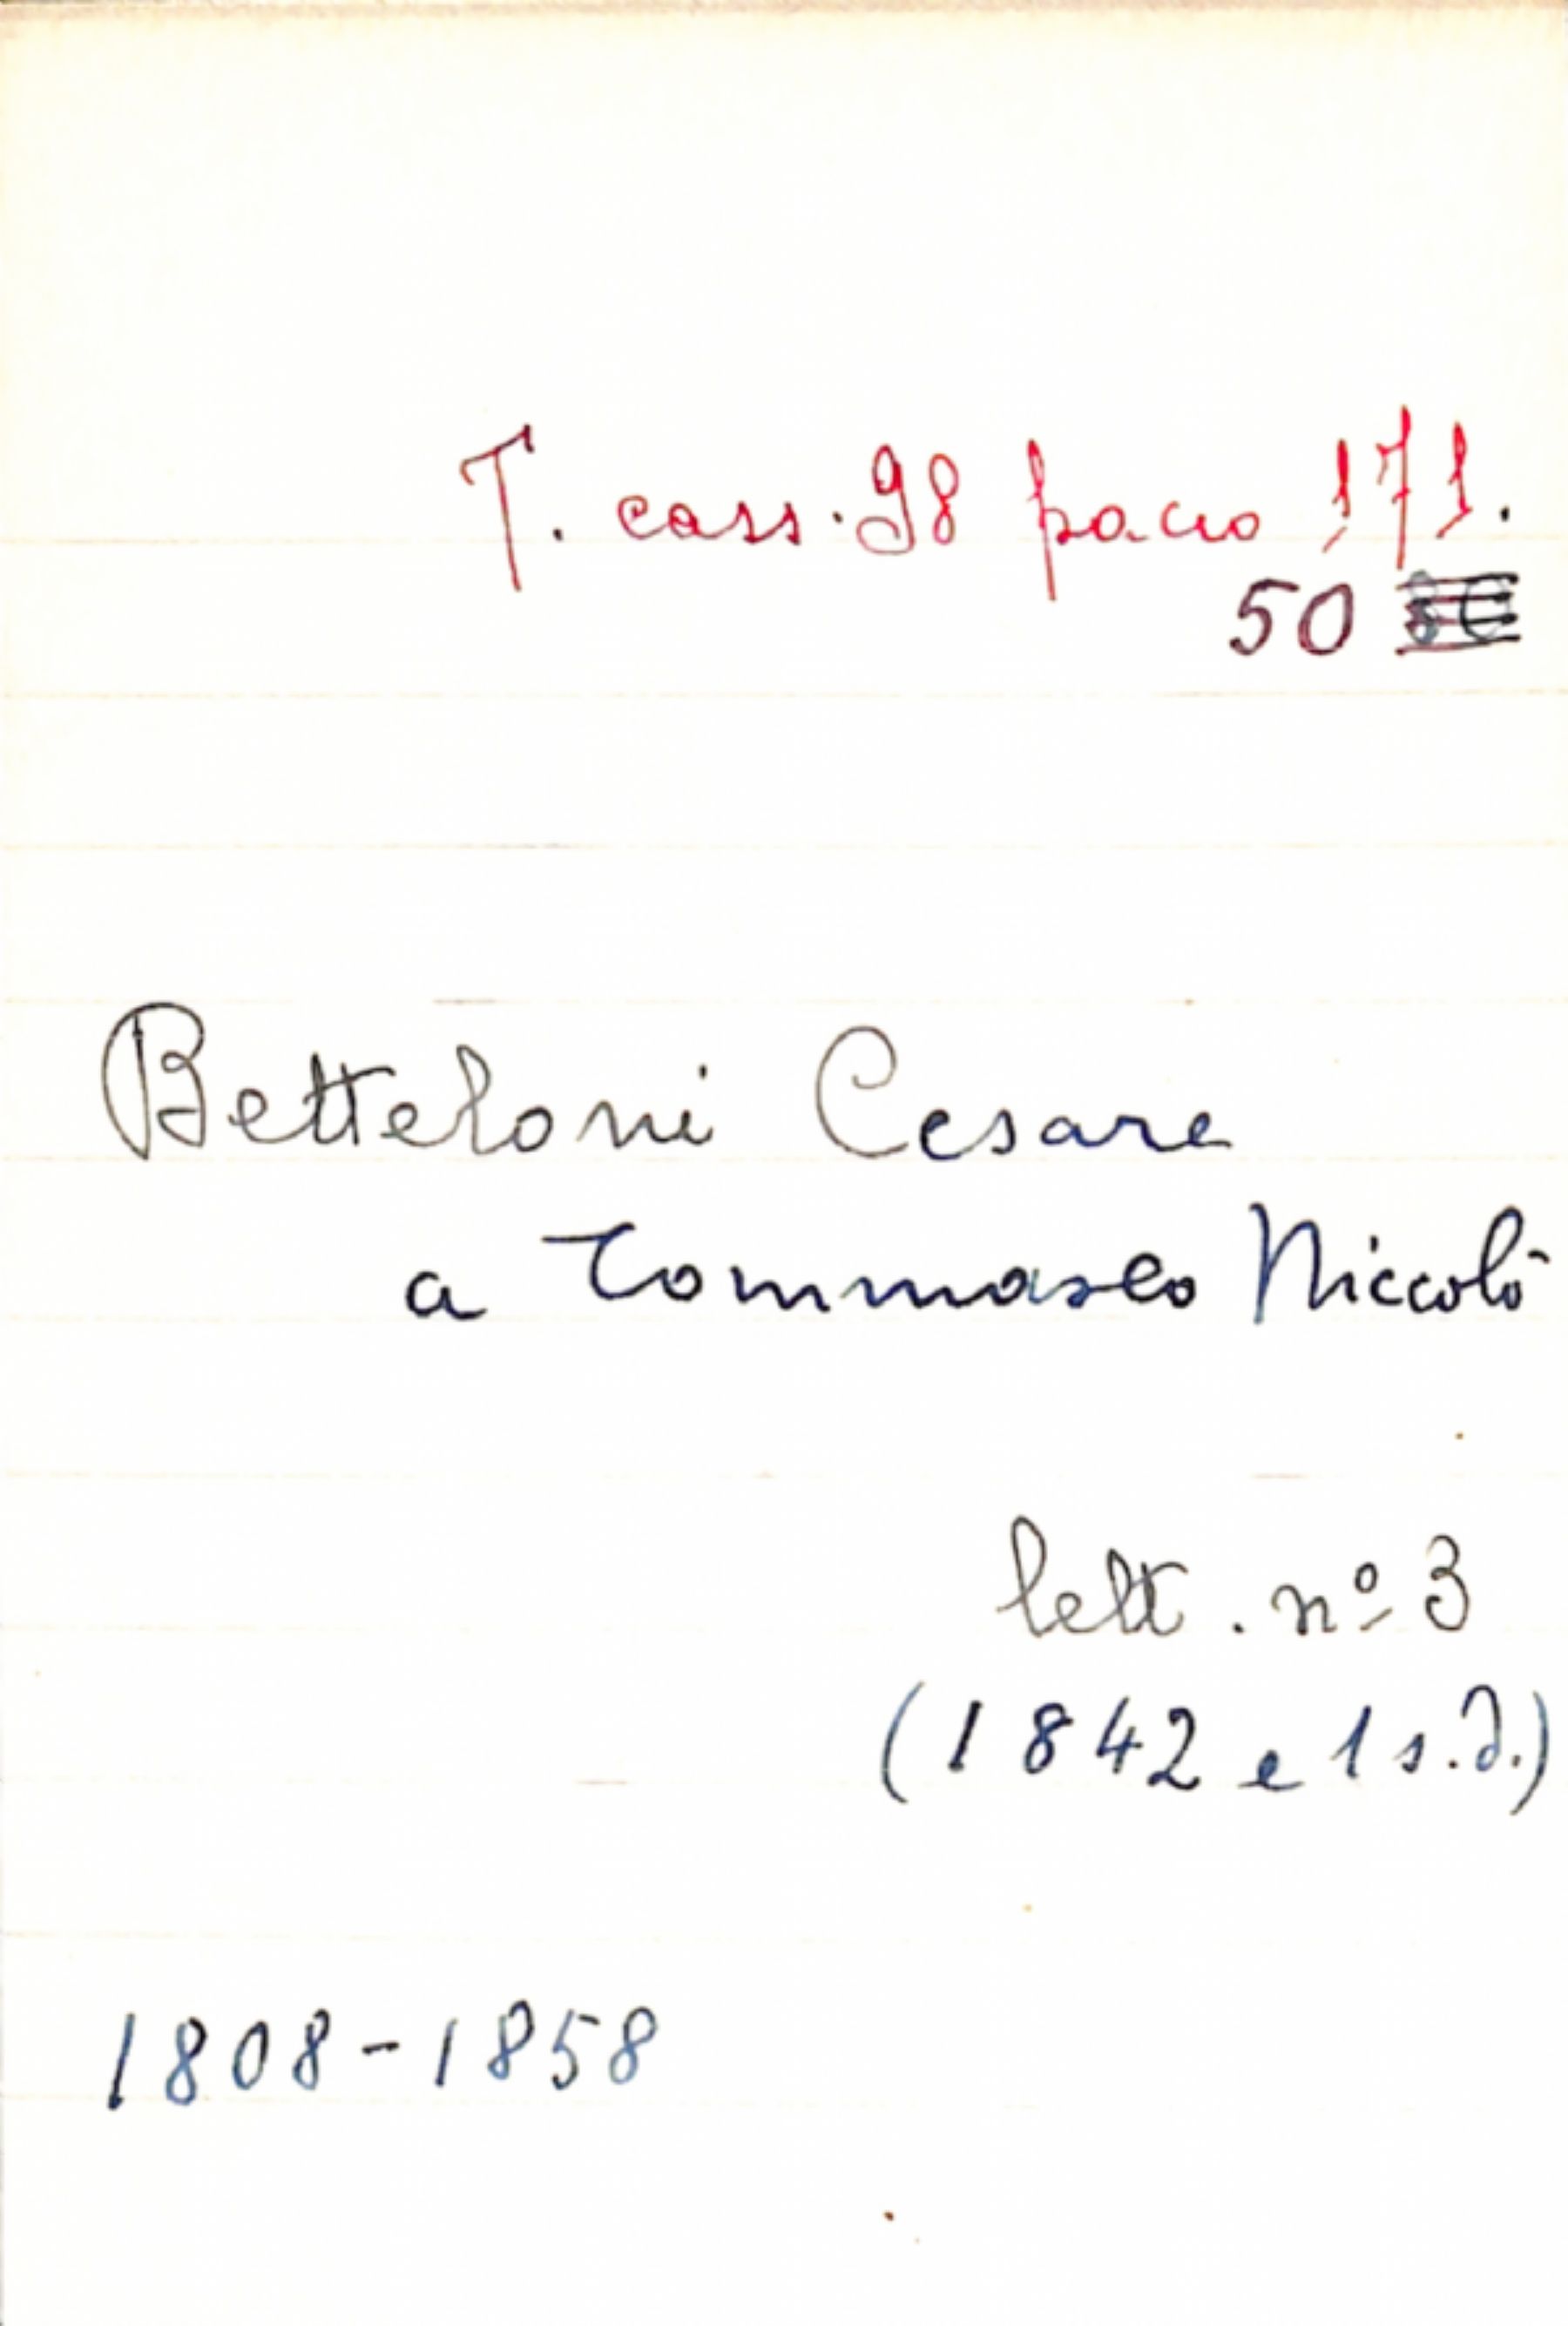 T. cass. 98 pacco 171.
50
Betteloni Cesare
a Tommaseo Niccolò
lett. nº 3
(1842 e 1 s.d.)
1808-1858